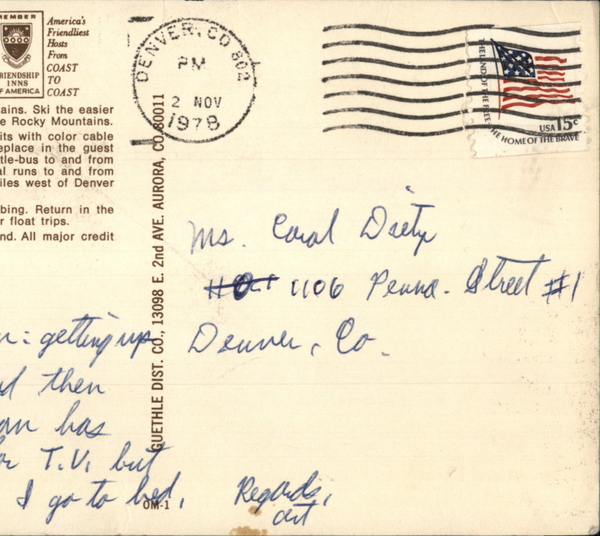 MEMBER
FRIENDSHIP
INNS
OF AMERICA
America's
Friendliest
Hosts
From
COAST
TO
COAST
ains. Ski the easier
e Rocky Mountains.
its with color cable
eplace in the guest
tle-bus to and from
al runs to and from
iles west of Denver
bing. Return in the
r float trips.
nd. All major credit
DENVER, CO 802
PM
2 NOV
1978
THE LAND OF THE FREE
THE HOME OF THE BRAVE
USA 15c
GUETHLE DIST. CO., 13098 E. 2nd AVE. AURORA, CO. 80011
Ms. Coral Dietz
1106 Penna. Street #1
Denver, Co.
n: getting up
d then
an has
or T.V. but
I go to bed.
Regards,
Art
OM-1